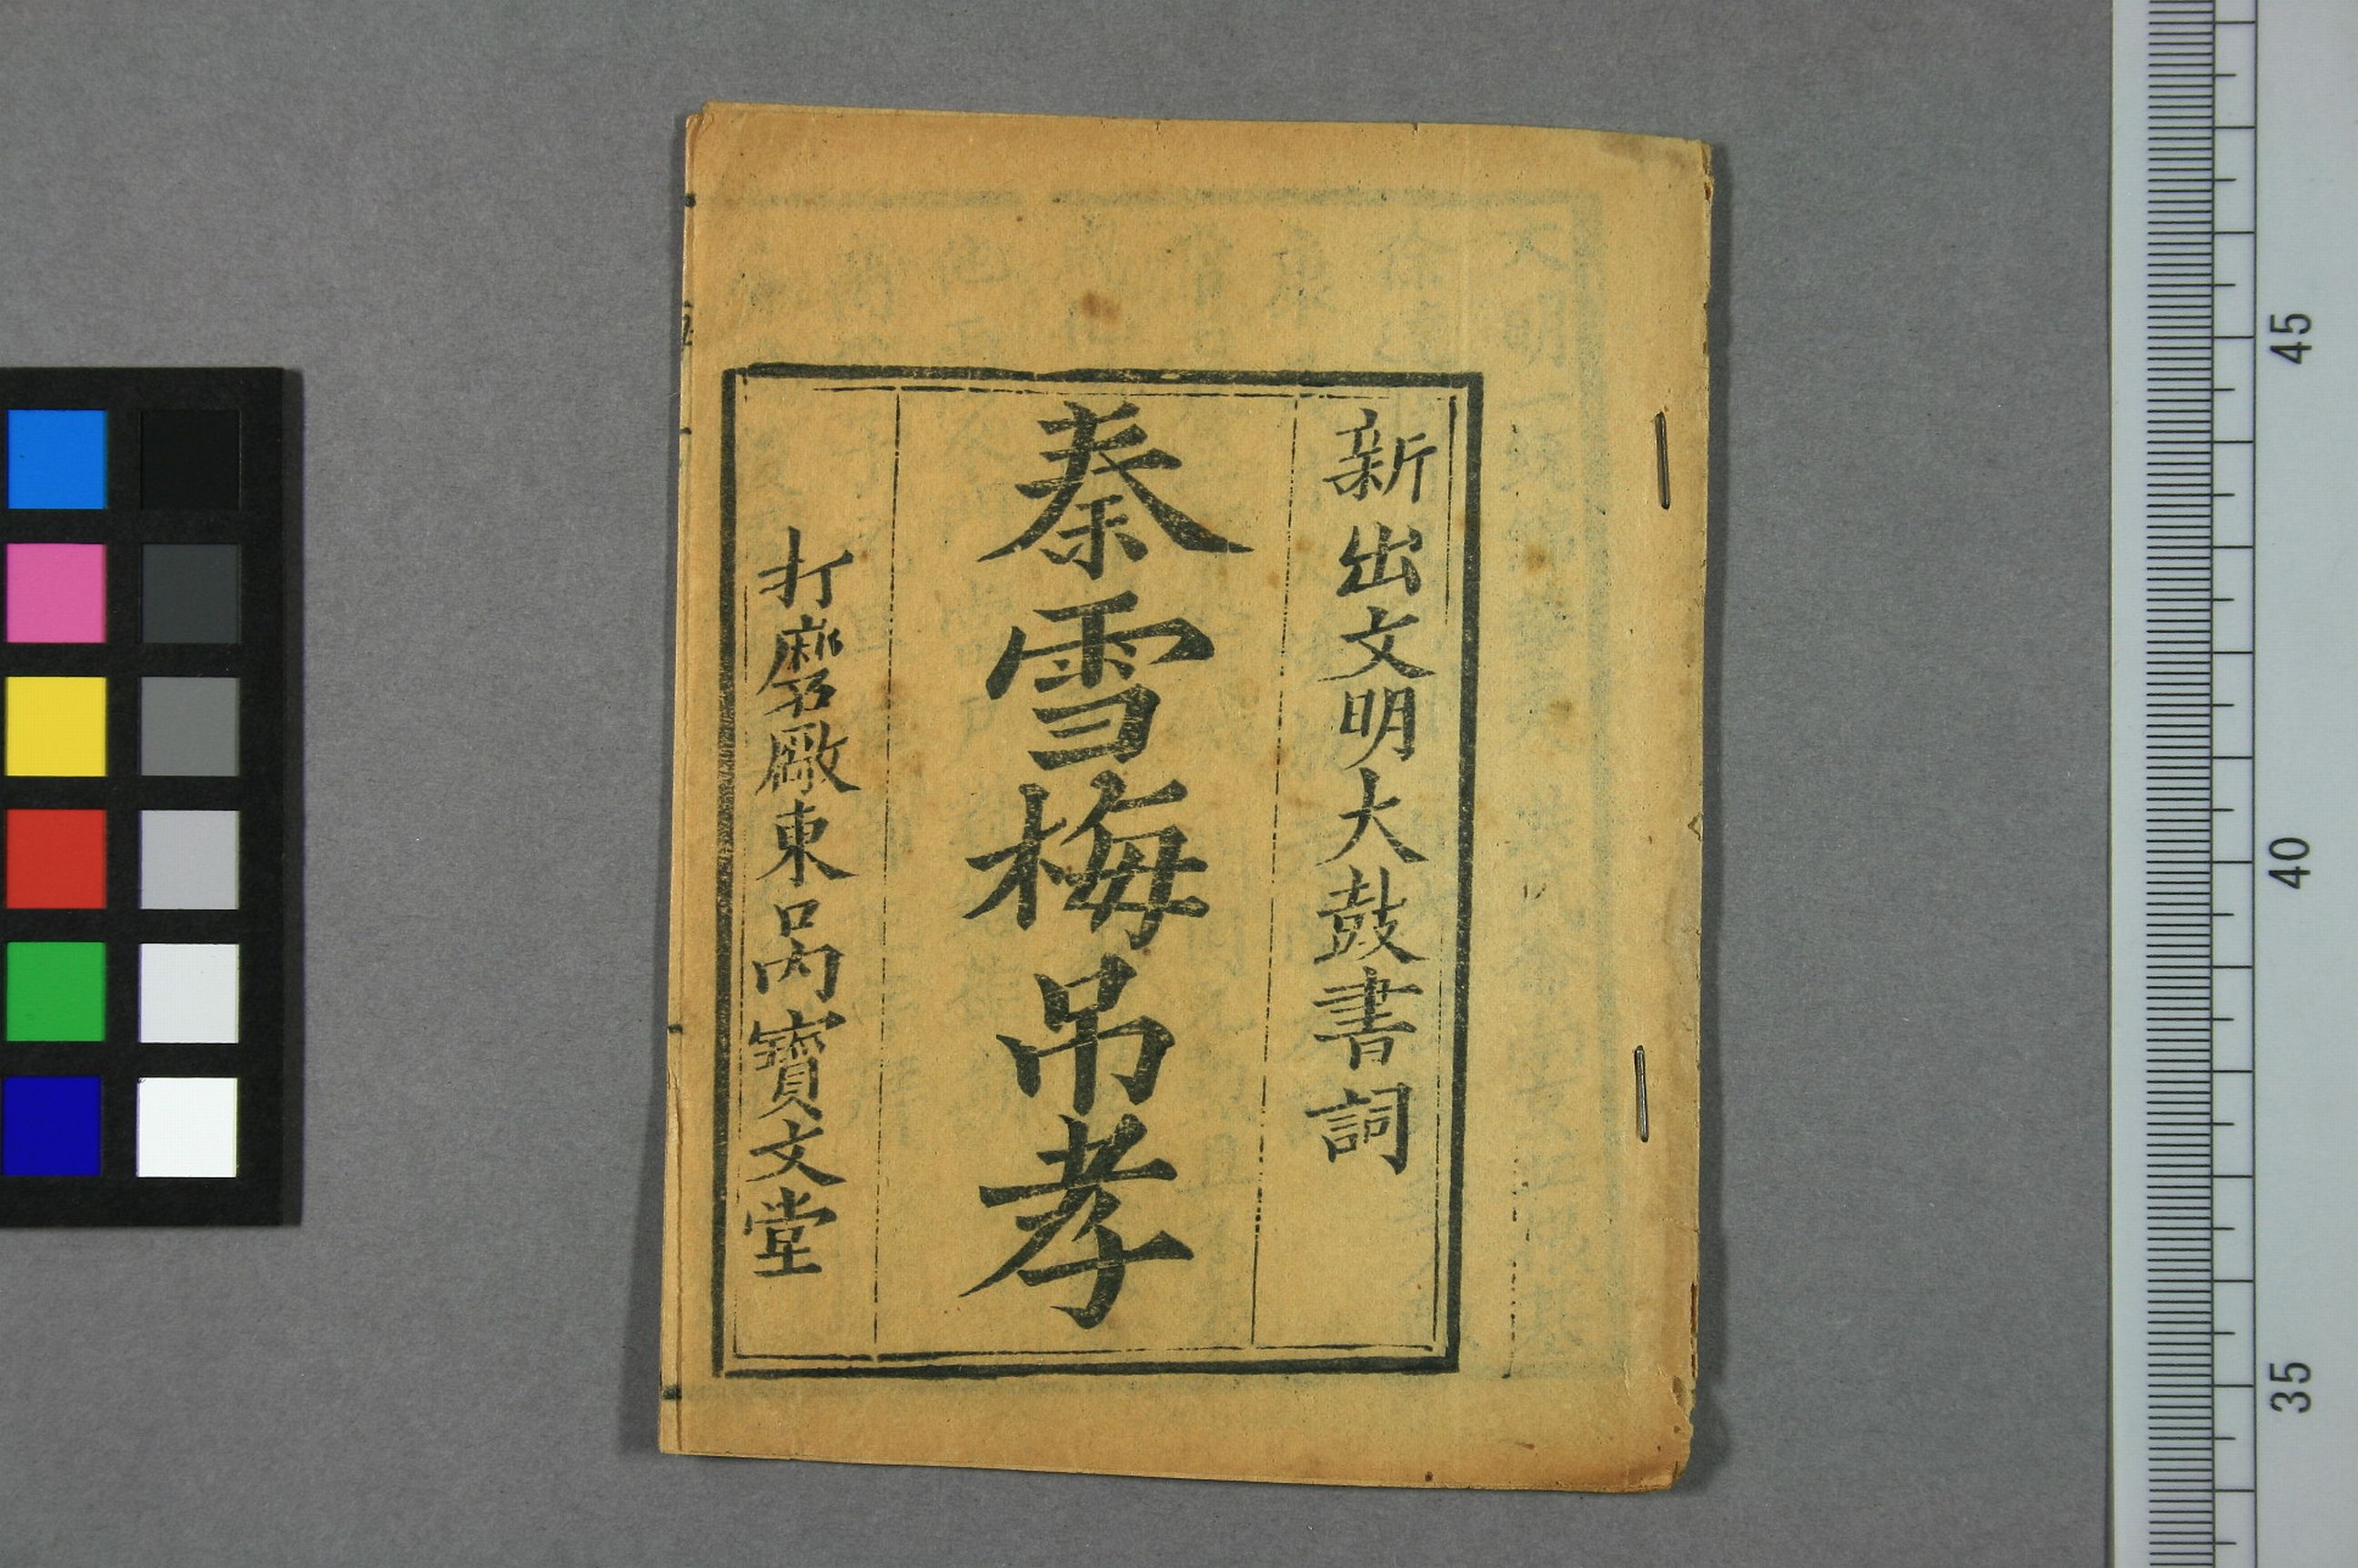 新出文明大鼓書詞
秦雪梅吊孝
打磨廠東口內寶文堂
45
40
35